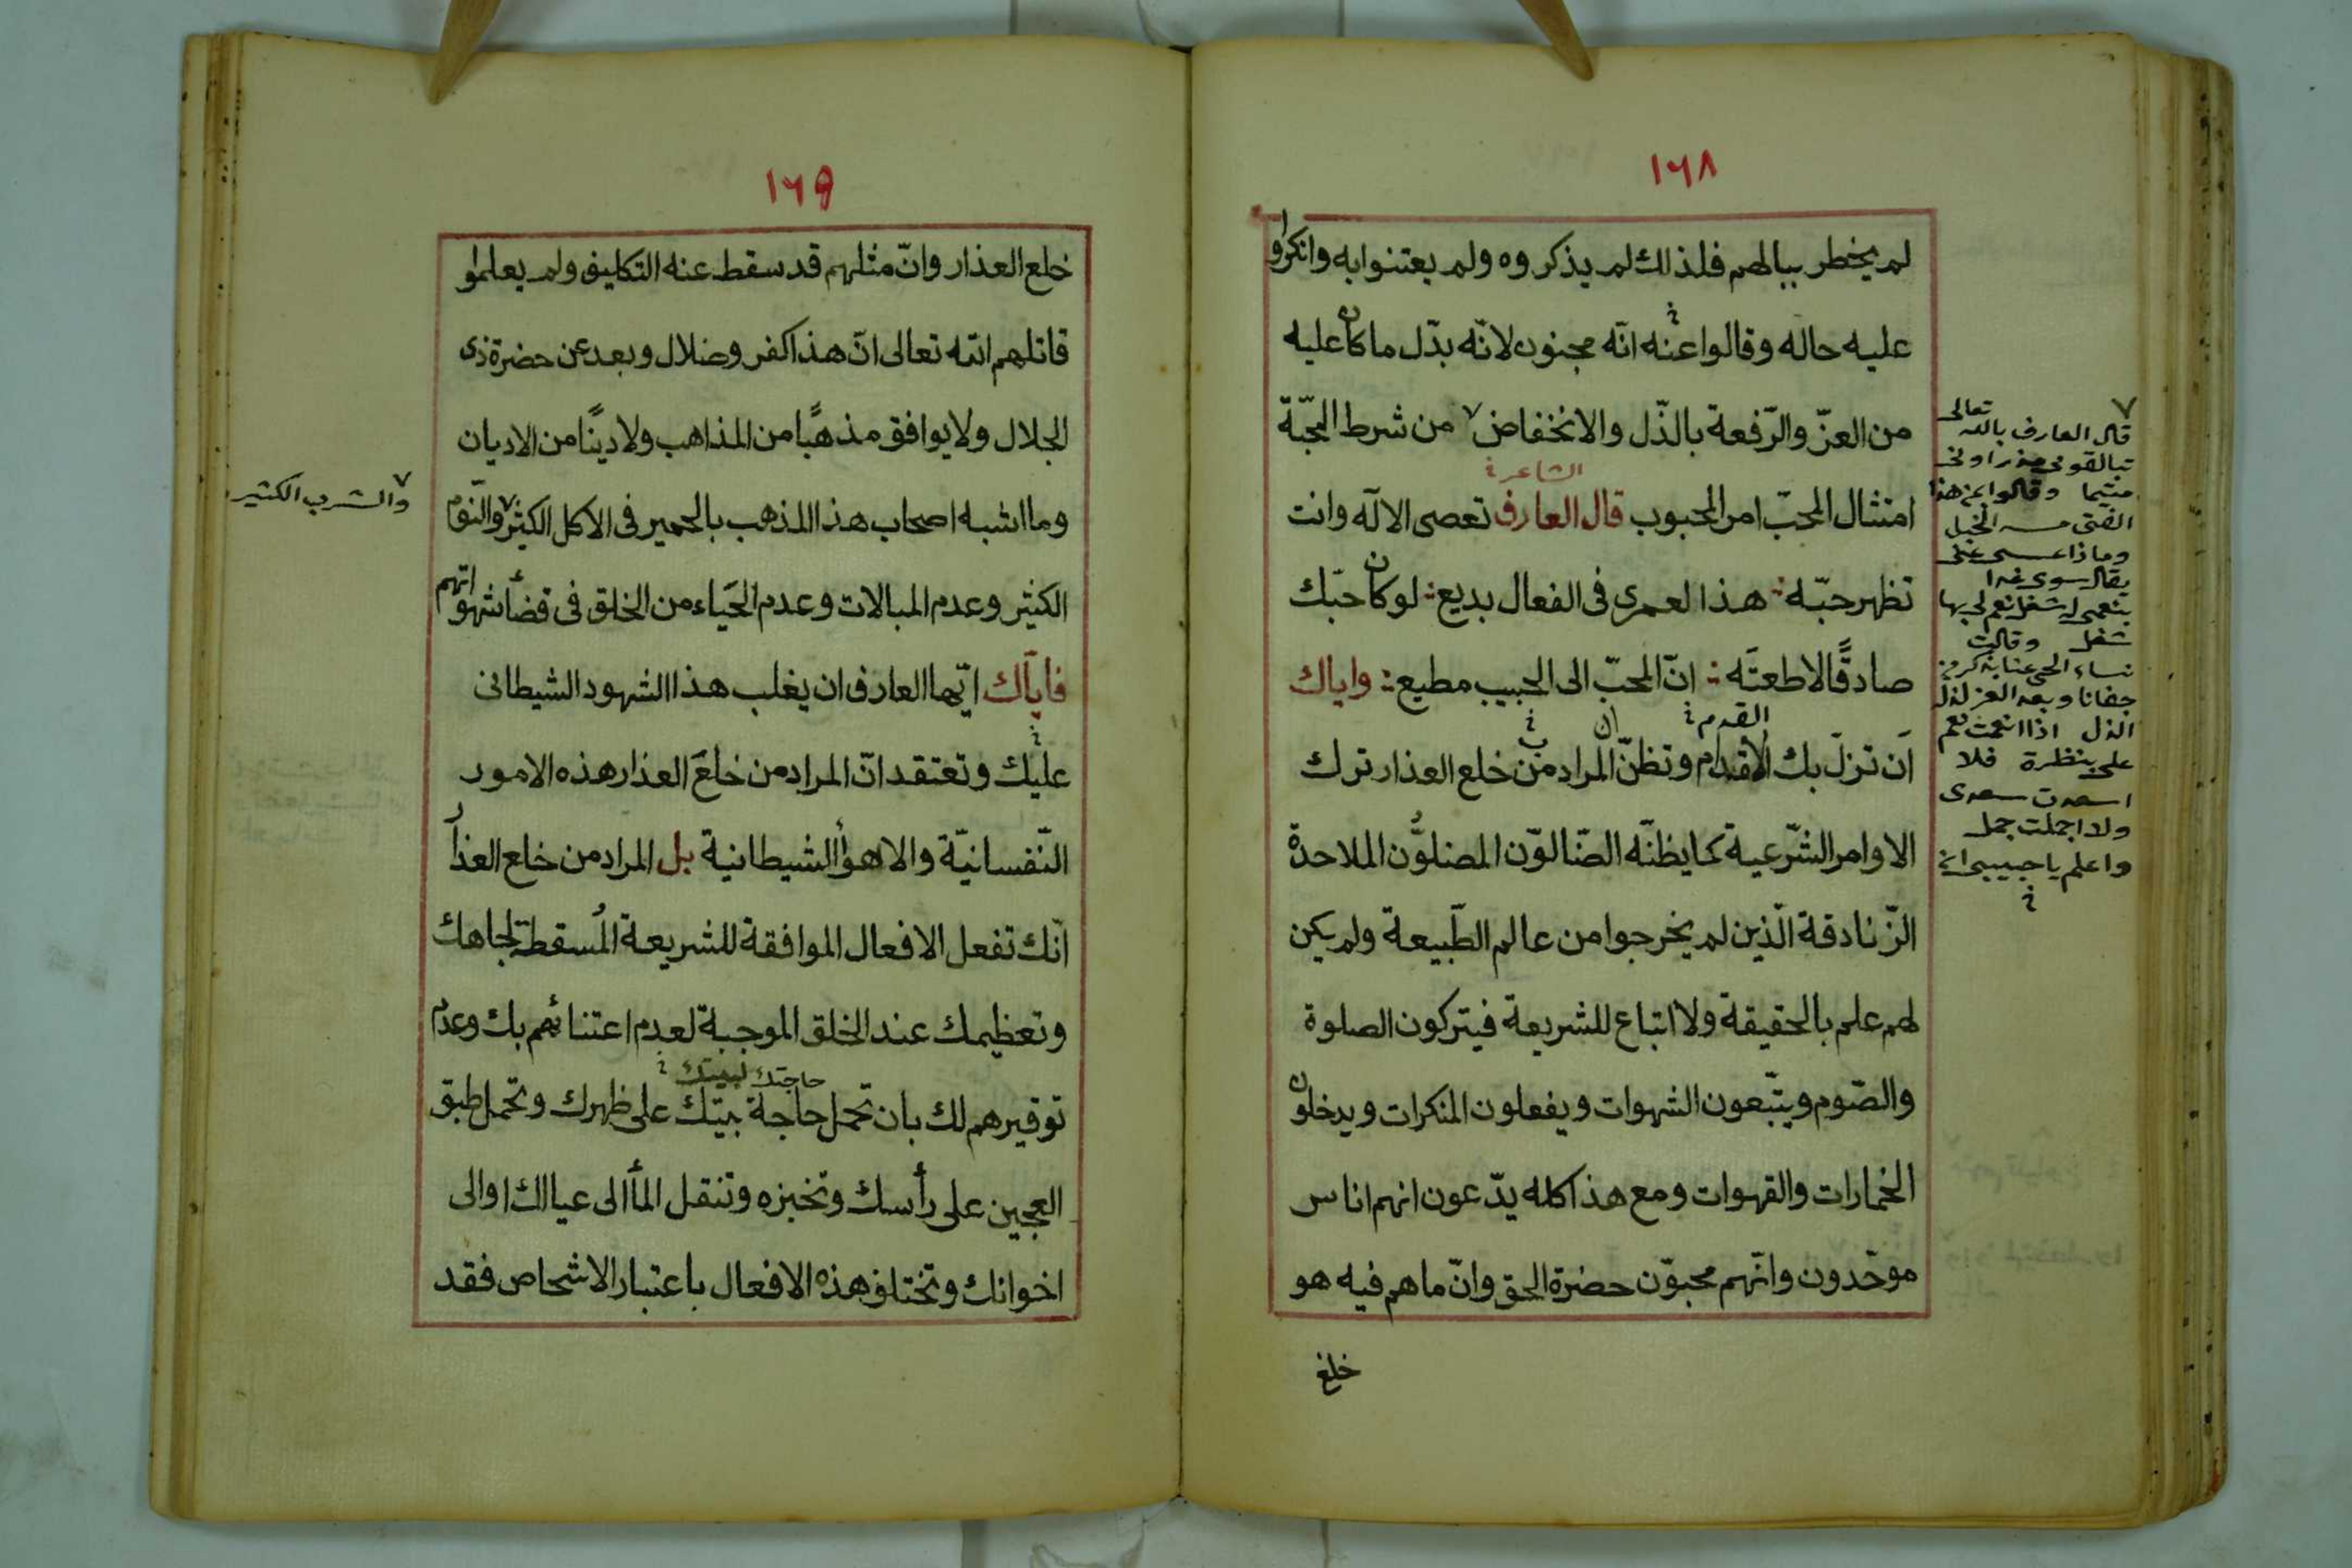 ١٦٨
لم يخطر ببالهم فلذلك لم يذكروه ولم يعتنوا به وانكروا
عليه حاله وقالوا عنه انّه مجنون لانّه بدّل ما كان عليه
من العزّ والرّفعة بالذّل والانخفاض ٧ من شرط المحبّة
الشاعر خ
امتثال المحبّ امر المحبوب قال العارف تعصى الالٓه وانت
تظهر حبّه هذا لعمرى فى الفعال بديع لو كان حبّك
صادقًا لاطعتَه انّ المحبّ الى الحبيب مطيع واياك
القدم خ ان
اَن تزلّ بك الاقدام وتظنّ المراد من خلع العذار ترك
الاوامر الشّرعية كما يظنّه الضّالوّن المضلوُّن الملاحدة
الزّنادقة الّذين لم يخرجوا من عالم الطّبيعة ولم يكن
لهم علم بالحقيقة ولا اتباع للشريعة فيتركون الصلوة
والصّوم ويتّبعون الشهوات ويفعلون المنكرات ويدخلون
الخمارات والقهوات ومع هذا كله يدّعون انهم اناس
موحّدون وانّهم محبوّن حضرة الحق وانّ ما هم فيه هو
خلع
٧
قال العارف بالله تعالى
تبالقومى مذ راونى
متيما وقالوا بمن هذا
الفتى مسه الخبل
وماذا عسى عنى
يقال سوى غدا
بنعمى له شغل نعم لى بها
شغل وقالت
نساء الحى عنا بذكر من
جفانا وبعد العز لذ له
الذل اذا انعمت نعم
على بنظرة فلا
اسعدت سعدى
ولا اجملت جمل
واعلم يا حبيبى ان
خ
١٦٩
خلع العذار وانّ مثلهم قد سقط عنه التكليف ولم يعلموا
قاتلهم الله تعالى انّ هذا كفر وضلال وبعد عن حضرة ذى
الجلال ولا يوافق مذهبًا من المذاهب ولا دينًا من الاديان
وما اشبه اصحاب هذا المذهب بالحمير فى الاكل الكثير ٧ والنّوم
الكثير وعدم المبالات وعدم الحَياء من الخلق فى قضأ شهواتهم
فايّاك ايّها العارف ان يغلب هذا الشهود الشيطانى
عليك وتعتقد انّ المراد من خلعَ العذار هذه الامور
النّفسانيّة والاهوأ الشيطانية بل المراد من خلع العذار
انّك تفعل الافعال الموافقة للشريعة المُسقطة لجاهك
وتعظيمك عند الخلق الموجبة لعدم اعتنائهم بك وعدم
حاجتك لبيتك خ
توقيرهم لك بان تحمل حاجة بيتك على ظهرك وتحمل طبق
العجين على رأسك وتخبزه وتنقل المأ الى عيالك او الى
اخوانك وتختلف هذه الافعال باعتبار الاشخاص فقد
٧
والشرب الكثير